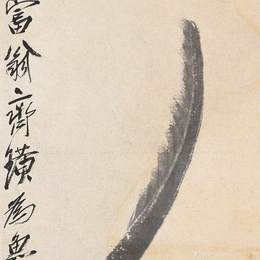 富翁齊璜為魚